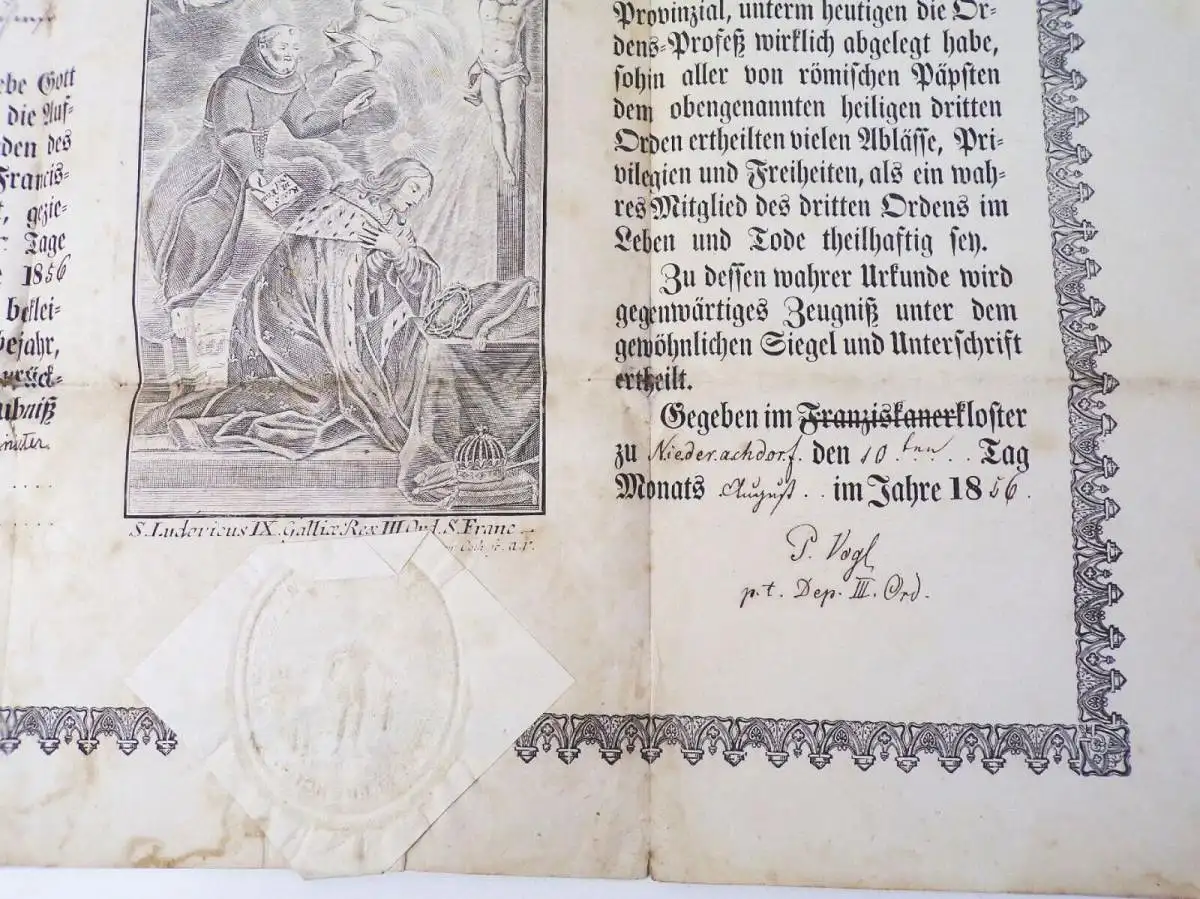 ebe Gott
die Auf-
den des
Francis-
t, gezie-
Tage
1856
beklei-
bejahr,
rück-
ubniß
S. Ludovicus IX. Galliæ Rex III Ord. S. Franc
Provinzial, unterm heutigen die Or-
dens-Profeß wirklich abgelegt habe,
sohin aller von römischen Päpsten
dem obengenannten heiligen dritten
Orden ertheilten vielen Ablässe, Pri-
vilegien und Freiheiten, als ein wah-
res Mitglied des dritten Ordens im
Leben und Tode theilhaftig sey.
Zu dessen wahrer Urkunde wird
gegenwärtiges Zeugniß unter dem
gewöhnlichen Siegel und Unterschrift
ertheilt.
Gegeben im Franziskanerkloster
zu Niederachdorf. den 10ten Tag
Monats August im Jahre 1856.
P. Vogl
p.t. Dep. III. Ord.